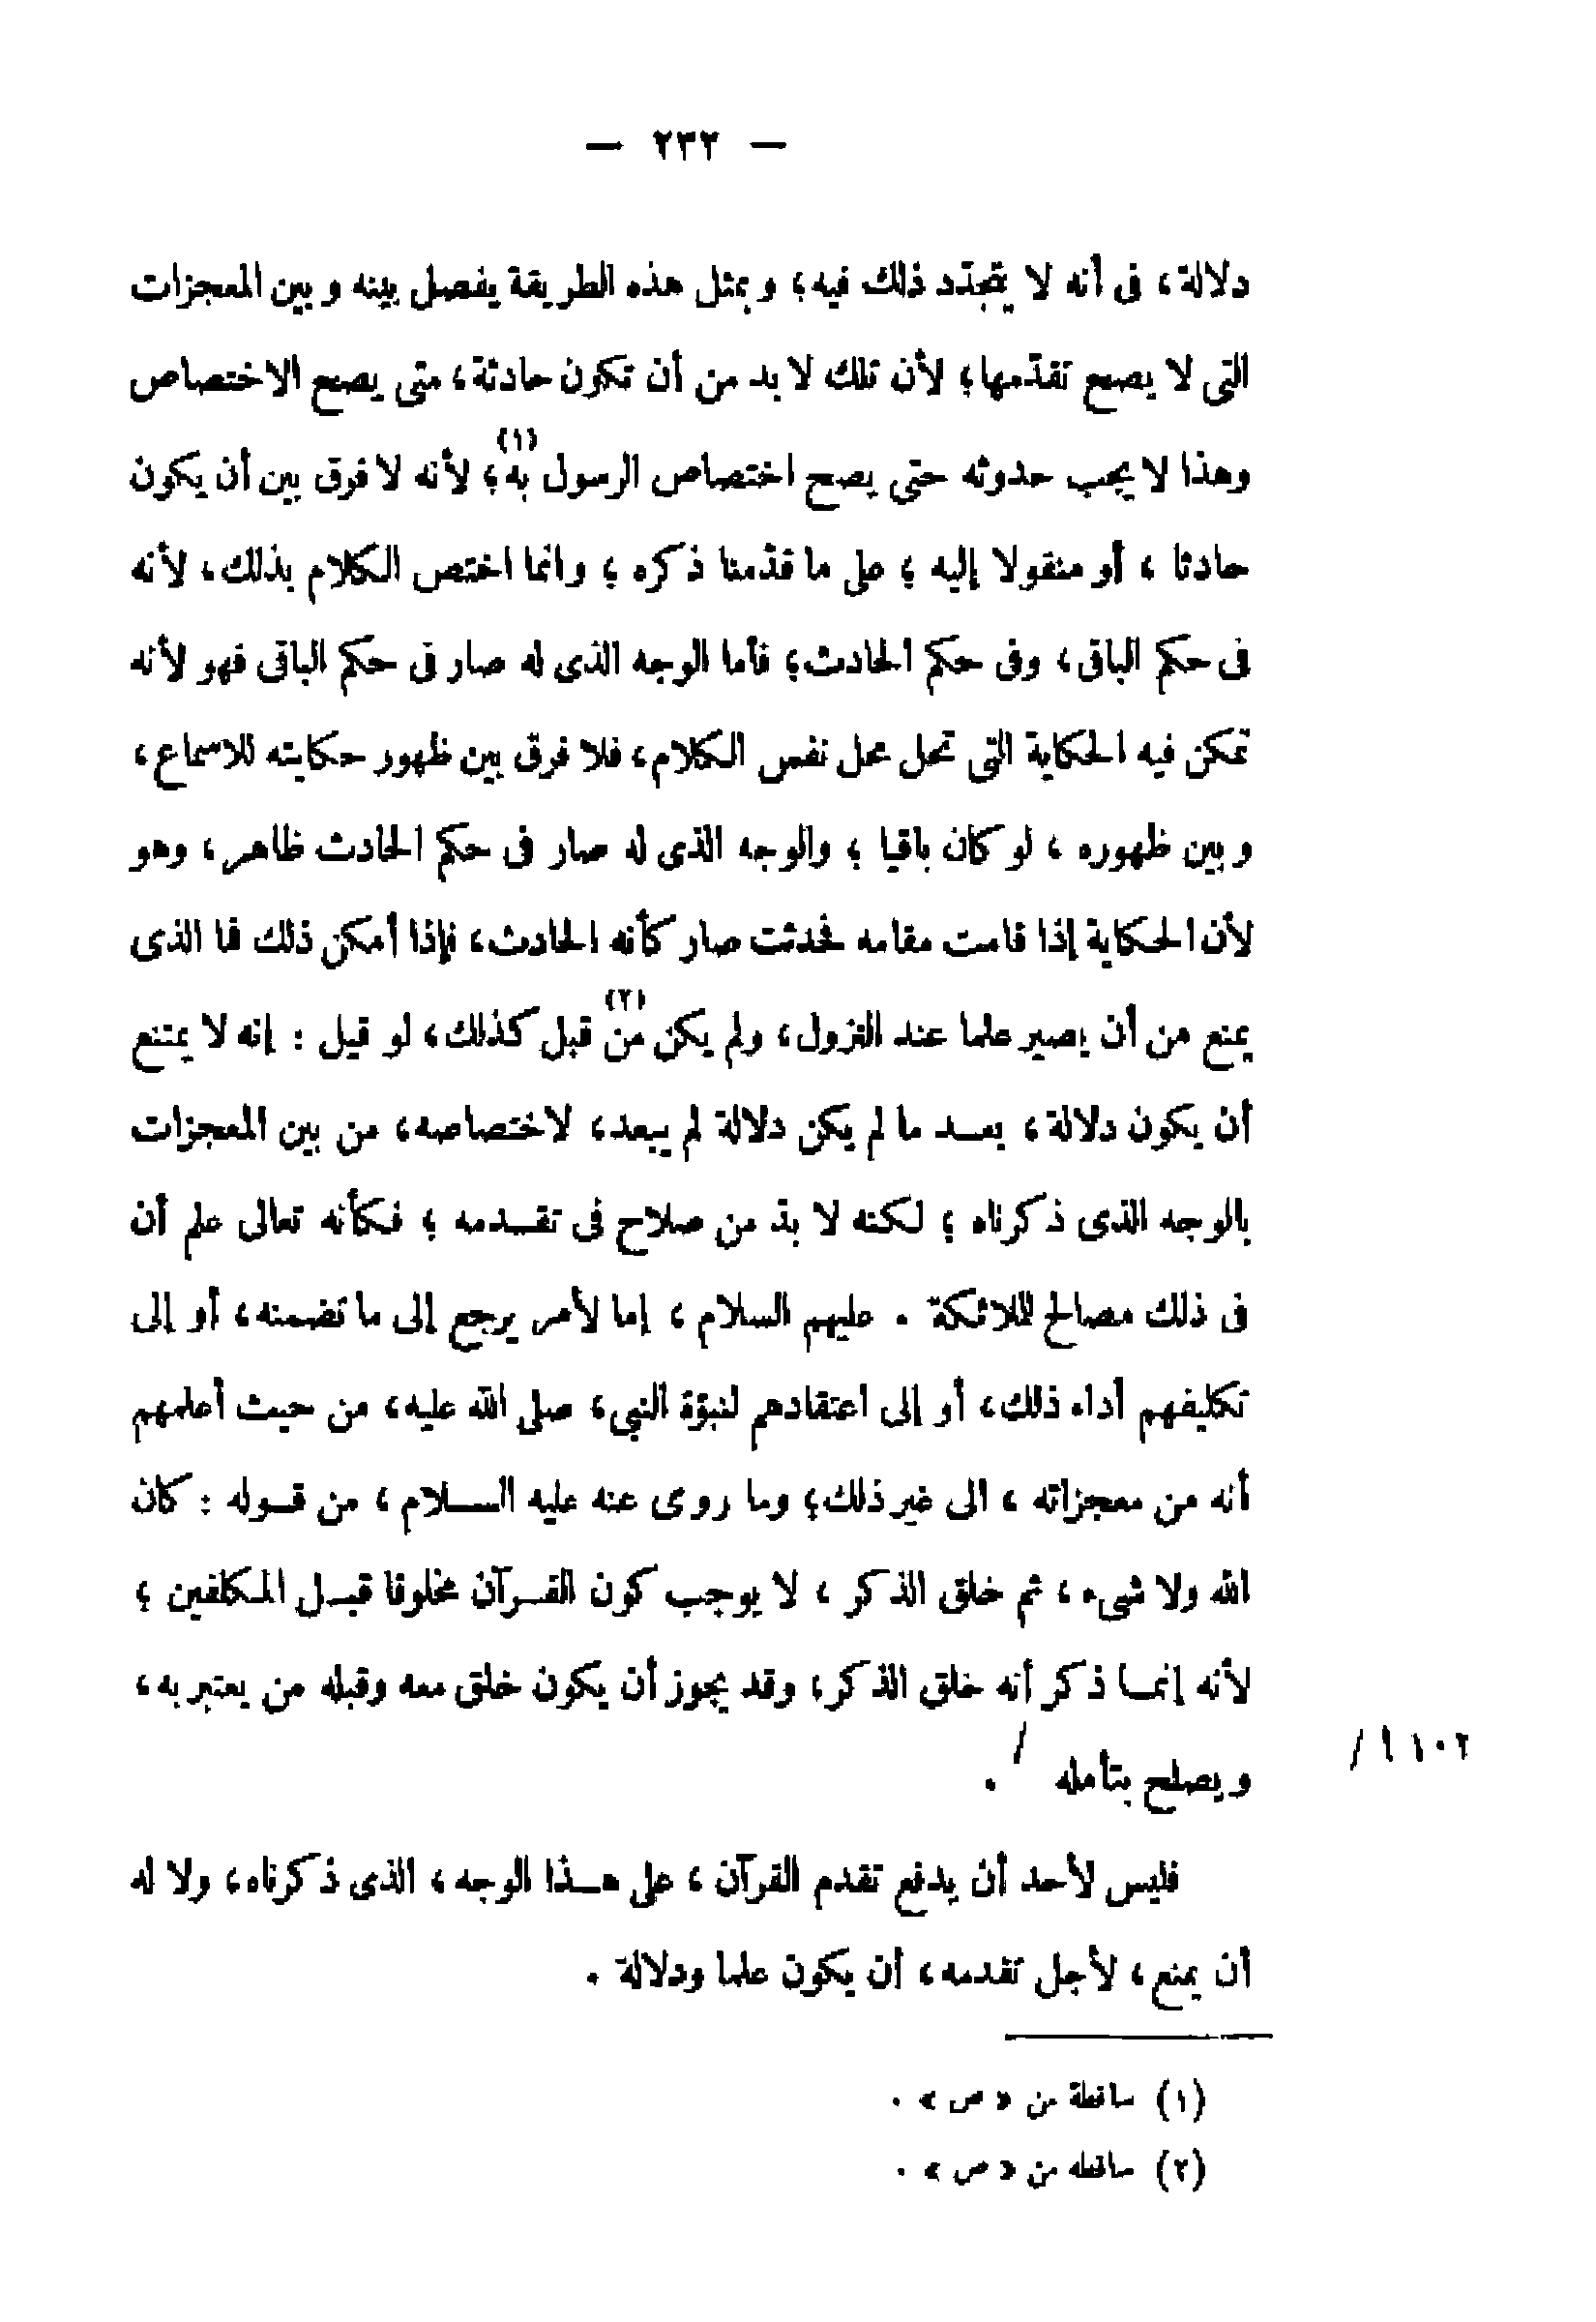 — ٢٣٢ —
دلالة ، فى أنه لا يتجدّد ذلك فيه ؛ وبمثل هذه الطريقة يفصل بينه وبين المعجزات
التى لا يصح تقدّمها ؛ لأن تلك لا بد من أن تكون حادثة ، متى يصح الاختصاص
وهذا لا يجب حدوثه حتى يصح اختصاص الرسول به(١) ؛ لأنه لا فرق بين أن يكون
حادثا ، أو منقولا إليه ؛ على ما قدّمنا ذكره ؛ وانما اختص الكلام بذلك ، لأنه
فى حكم الباقى ، وفى حكم الحادث ؛ فأما الوجه الذى له صار فى حكم الباقى فهو لأنه
تمكن فيه الحكاية التى تحل محل نفس الكلام ، فلا فرق بين ظهور حكايته للاسماع ،
وبين ظهوره ، لو كان باقيا ؛ والوجه الذى له صار فى حكم الحادث ظاهر ، وهو
لأن الحكاية إذا قامت مقامه فحدثت صار كأنه الحادث ، فإذا أمكن ذلك فما الذى
يمنع من أن يصير علما عند النزول ، ولم يكن من(٢) قبل كذلك ، لو قيل : إنه لا يمتنع
أن يكون دلالة ، بعد ما لم يكن دلالة لم يبعد ، لاختصاصه ، من بين المعجزات
بالوجه الذى ذكرناه ؛ لكنه لا بدّ من صلاح فى تقدمه ؛ فكأنه تعالى علم أن
فى ذلك مصالح للملائكة . عليهم السلام ، إما لأمر يرجع إلى ما تضمنه ، أو إلى
تكليفهم أداء ذلك ، أو إلى اعتقادهم لنبوّة النبى ، صلى الله عليه ، من حيث أعلمهم
أنه من معجزاته ، الى غير ذلك ؛ وما روى عنه عليه السلام ، من قوله : كان
الله ولا شىء ، ثم خلق الذكر ، لا يوجب كون القرآن مخلوقا قبل المكلفين ؛
لأنه إنما ذكر أنه خلق الذكر ، وقد يجوز أن يكون خلق معه وقبله من يعتبر به ،
ويصلح بتأمله / .
١٠٢ ٩ /
فليس لأحد أن يدفع تقدم القرآن ، على هذا الوجه ، الذى ذكرناه ، ولا له
أن يمنع ، لأجل تقدمه ، أن يكون علما ودلالة .
(١) ساقطة من « ص » .
(٢) ساقطه من « ص » .